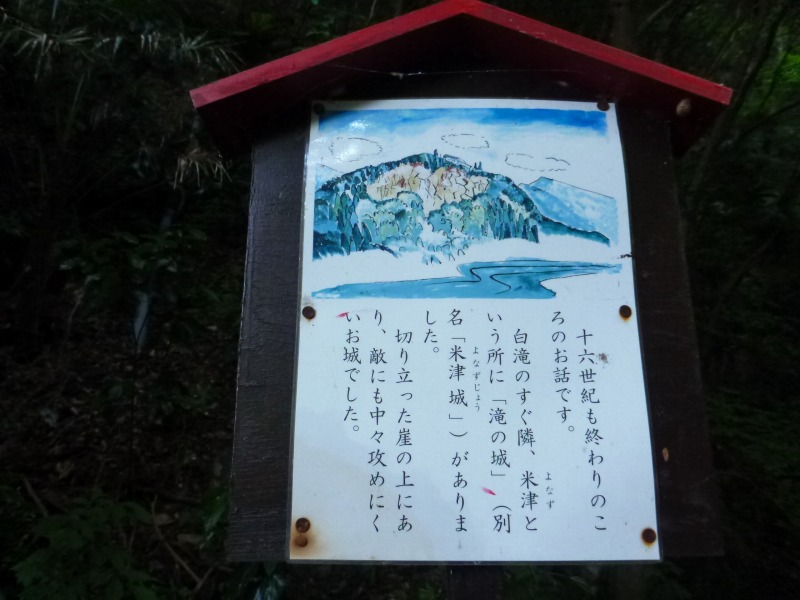 十六世紀も終わりのこ
ろのお話です。
白滝のすぐ隣、米津と
よなず
いう所に「滝の城」（別
名「米津城」）がありま
よなずじょう
した。
切り立った崖の上にあ
り、敵にも中々攻めにく
いお城でした。